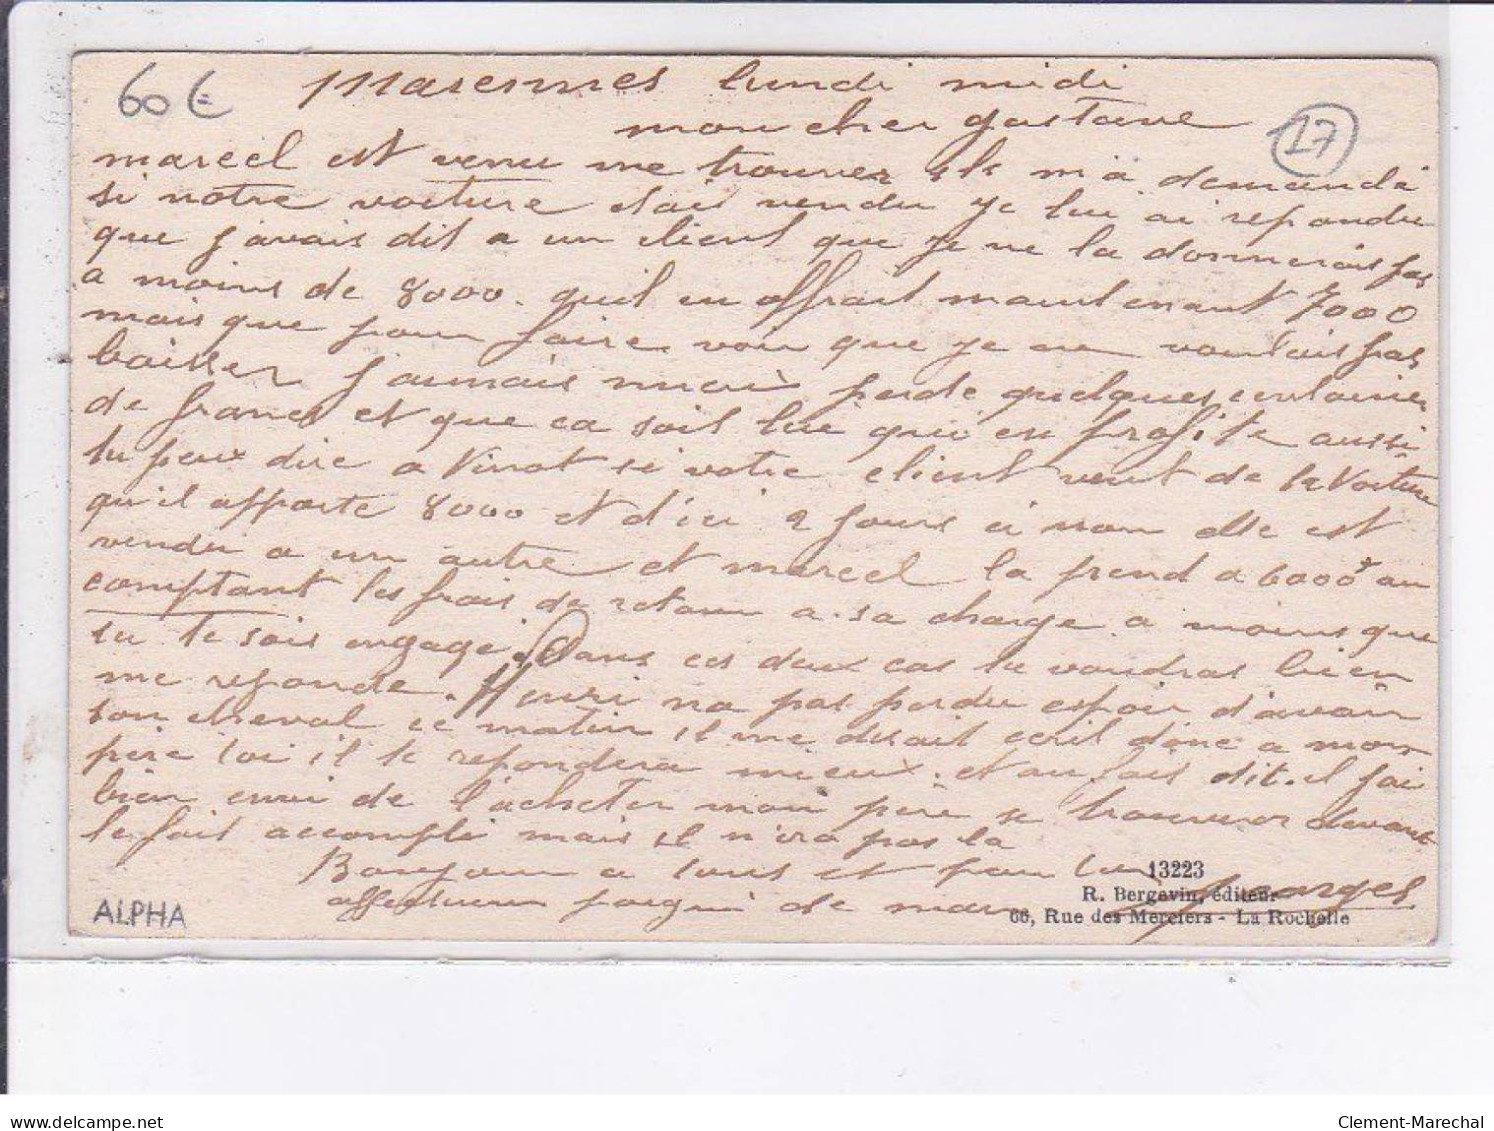 60 €
Marennes lundi midi
17
mon cher gastave
marcel est venu me trouver ils m'a demandé
si notre voiture était vendu je lui ai repondu
que j'avais dit a un client que je ne la donnerais pas
a moins de 8000. quil en offrait maintenant 7000
mais que pour faire voir que je en voulais pas
baisser j'aimais mieux perde quelques centaines
de francs et que ca soit lui qui en profite aussi
tu peux dire a Vinot si votre client veut de la Voiture
qu'il apporte 8000 et d'ici 2 jours ci non elle est
vendu a un autre et marcel la prend a 6000 au
comptant les frais de retour a sa charge a moins que
tu te sois engagé. Dans ces deux cas tu voudras bien
me reponde. Henri na pas perdu espoir d'avoir
son cheval ce matin il me disait ecrit donc a mon
père toi il te repondera mieux. et au fait dit. il j'ai
bien envi de l'acheter mon père se trouver devant
le fait accompli mais il n'ira pas la
Bonjour a tous et pour toi
affectueux de Georges
ALPHA
13223
R. Bergevin, éditeur
66, Rue des Merciers - La Rochelle
delcampe.net
Clement-Marechal